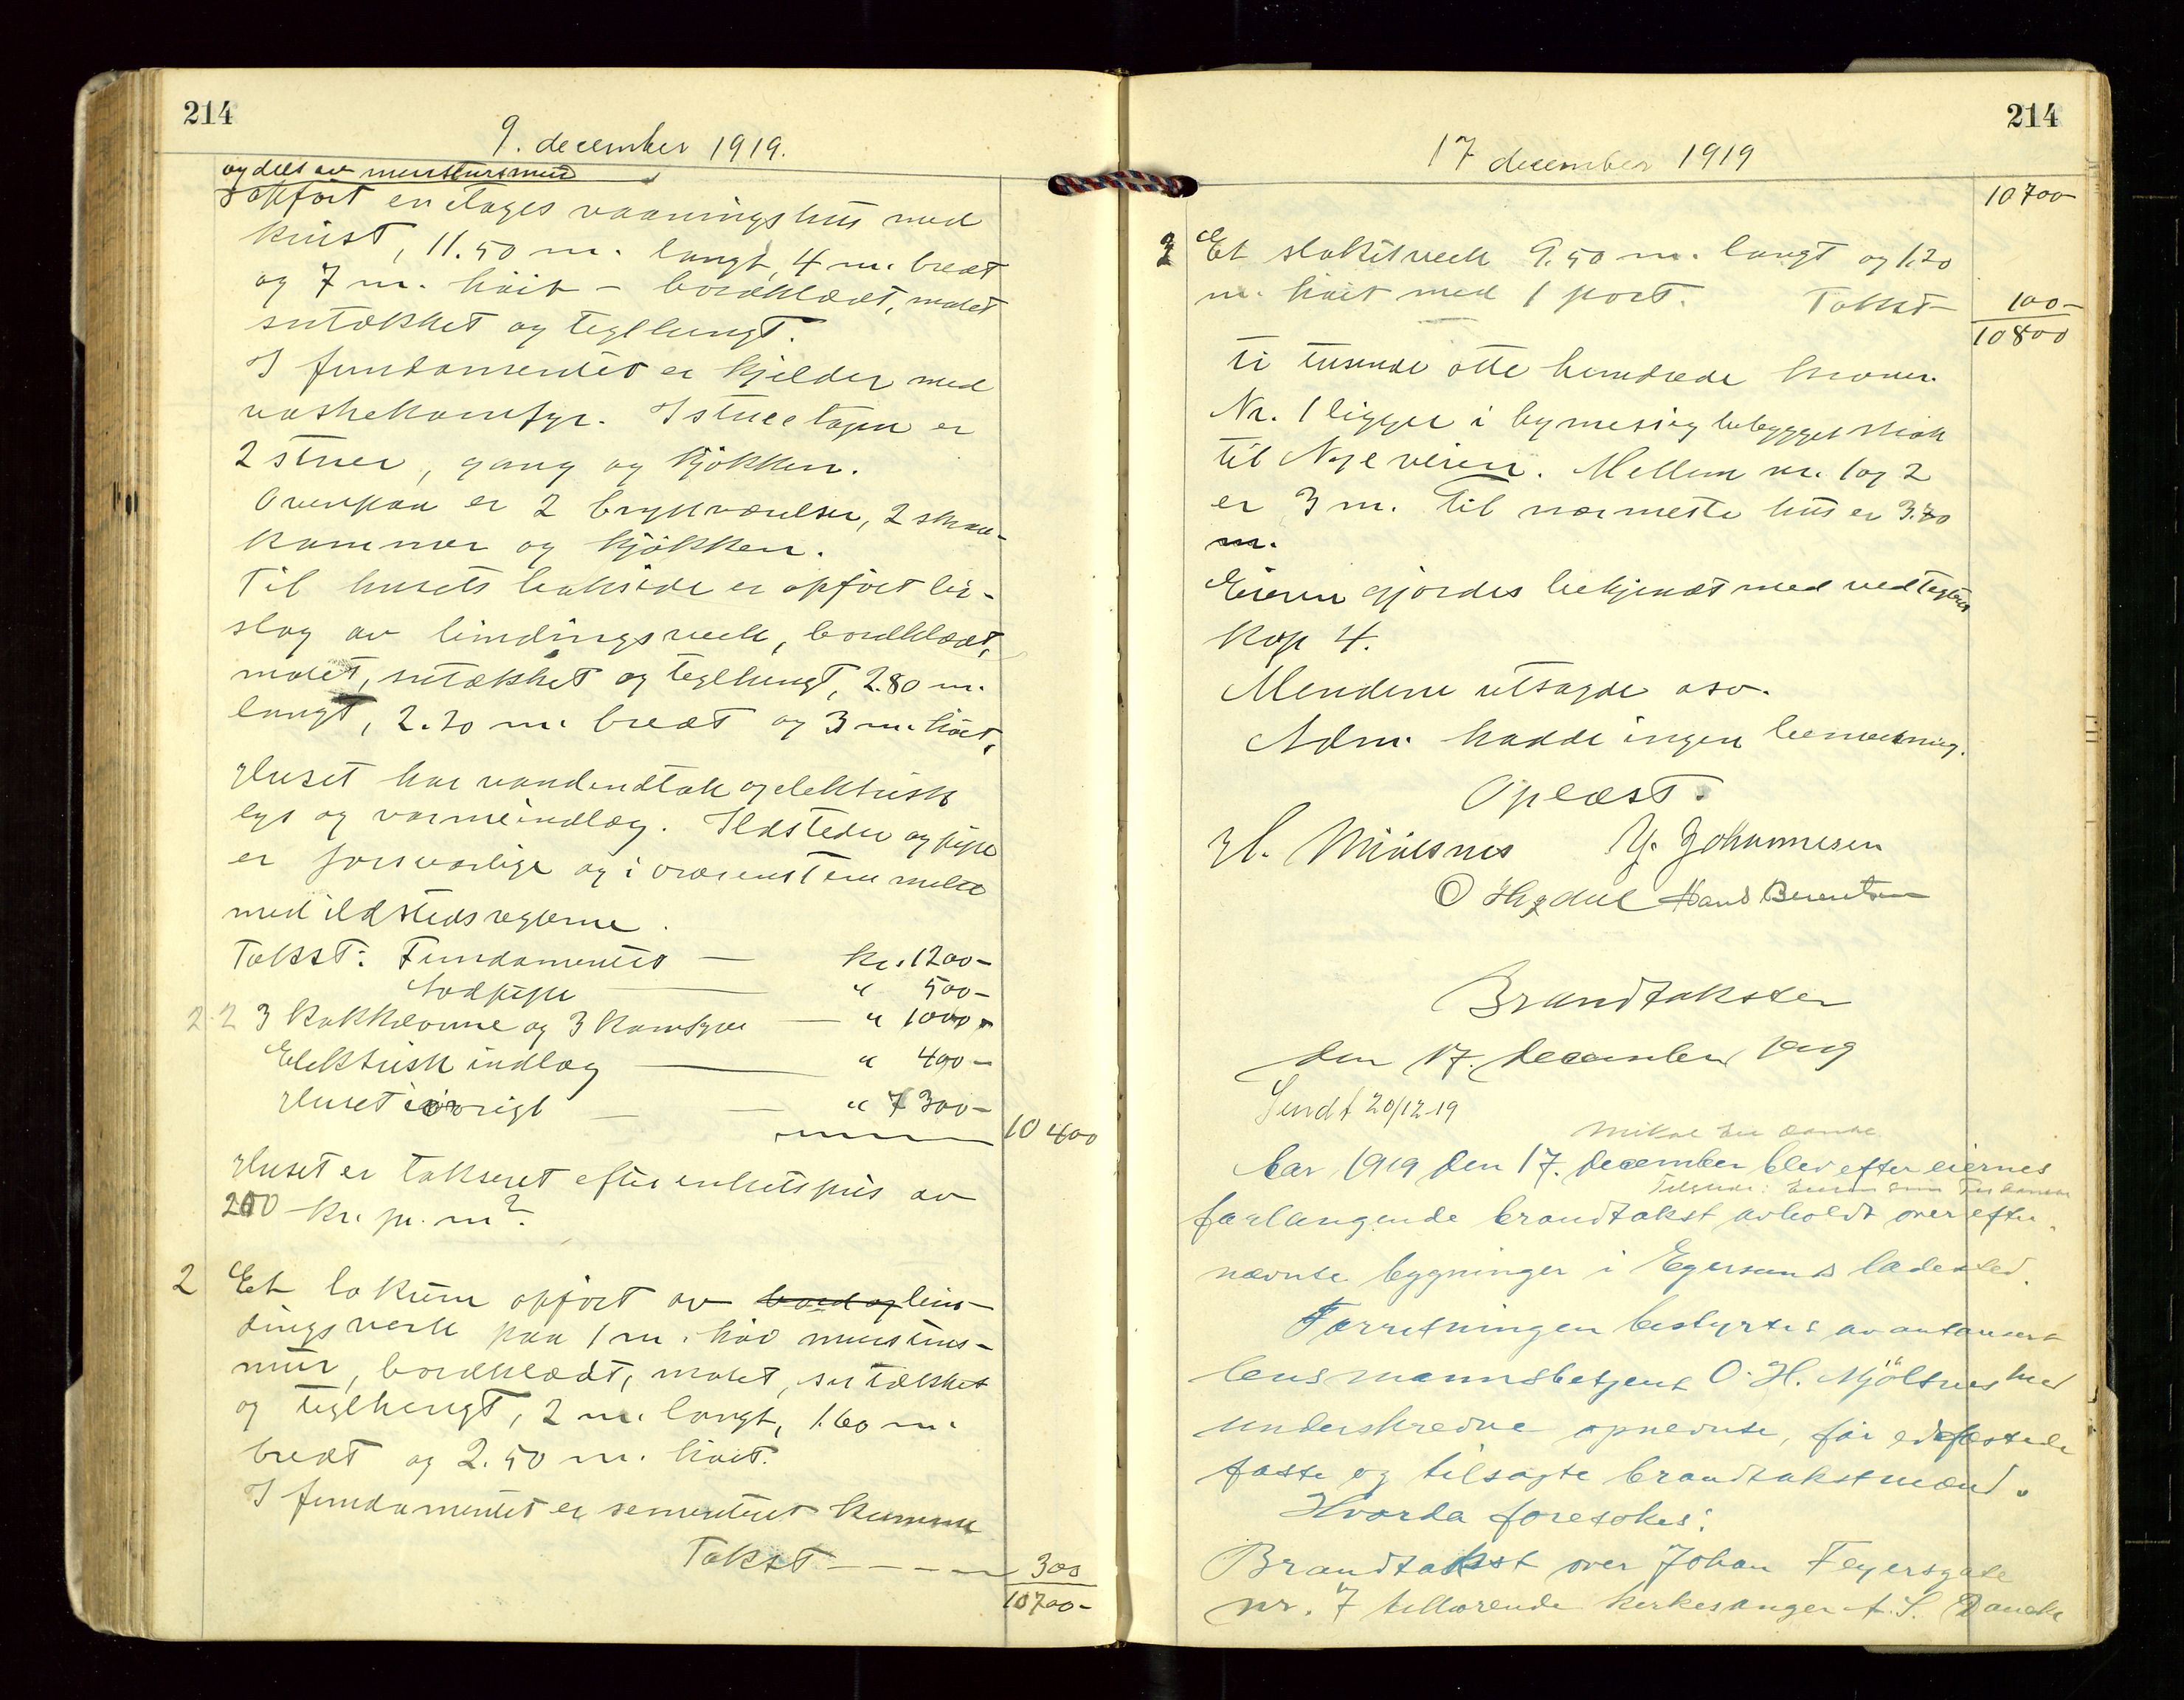 214
9. december 1919.
og dels av murstensmur
opført en etages vaaningshus med
kvist, 11.50 m. langt, 4 m. bredt
og 7 m. høit – bordklædt, malet
sutækket og teglhengt.
I fundamentet er kjelder med
vaskekomfyr. I stueetagen er
2 stuer, gang og kjøkken.
Ovenpaa er 2 kvistværelser, 2 skraa-
kammer og kjøkken.
Til husets bakside er opført bis-
slag av bindingsverk, bordklædt,
malet, sutækket og teglhengt, 2.80 m.
langt, 2.20 m. bredt og 3 m. høit.
Huset har vandindtak og elektrisk
lys og varmeindlæg. Ildsteder og pipe
er forsvarlige og i overensstemmelse
med ildstedsreglerne.
Takst: Fundamentet — kr. 1200–
Sodpipe — " 500–
2 2 3 kakkelovne og 3 komfyrer — " 1000–
Elektrisk indlæg — " 400–
Huset iøvrigt — — " 7300–
10400
Huset er takseret efter enhetspris av
200 kr. pr. m².
2 Et lokum opført av bord og bin-
dingsverk paa 1 m. høi murstens-
mur, bordklædt, malet, sutækket
og teglhengt, 2 m. langt, 1.60 m.
bredt og 2.50 m. høit.
I fundamentet er sementeret kumme
Takst – – – – 300
10700–
214
17 december 1919
10700–
3 Et stakitverk 9.50 m. langt og 1.20
m. høit med 1 port. Takst– 100–
10800
ti tusende otte hundrede kroner.
Nr. 1 ligger i bymessig bebygget strøk
til Nyeveien. Mellem nr. 1 og 2
er 3 m. Til nærmeste hus er 3.80
m.
Eieren gjordes bekjendt med vedtægtens
kap 4.
Mendene utsagde osv.
Adm. hadde ingen bemerkning.
Oplæst.
H. Y. Johannesen
O Hans Berentsen
Brandtakster
den 17. december 1919
Sendt 20/12-19
Aar 1919 den 17. december blev efter eiernes
Tilstede: Eieren
forlangende brandtakst avholdt over efter-
nævnte bygninger i Egersunds ladested.
Forretningen bestyrtes av autoriseret
lensmannsbetjent O. H. Mjölsnes med
underskrevne opnevnte, før edfæstede
faste og tilsagte brandtakstmænd.
Hvorda foretokes:
Brandtakst over Johan Feyersgate
nr. 7 tilhørende kirkesanger A. S. Daneke